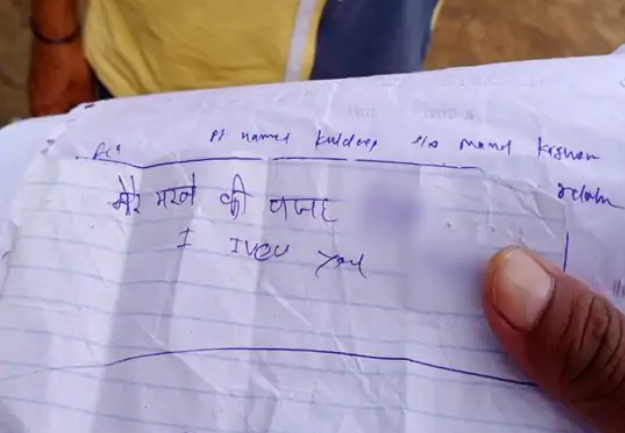 Pt named Kuldeep s/o Mamd Kishan
मेरे मरने की वजह
I IVOU you